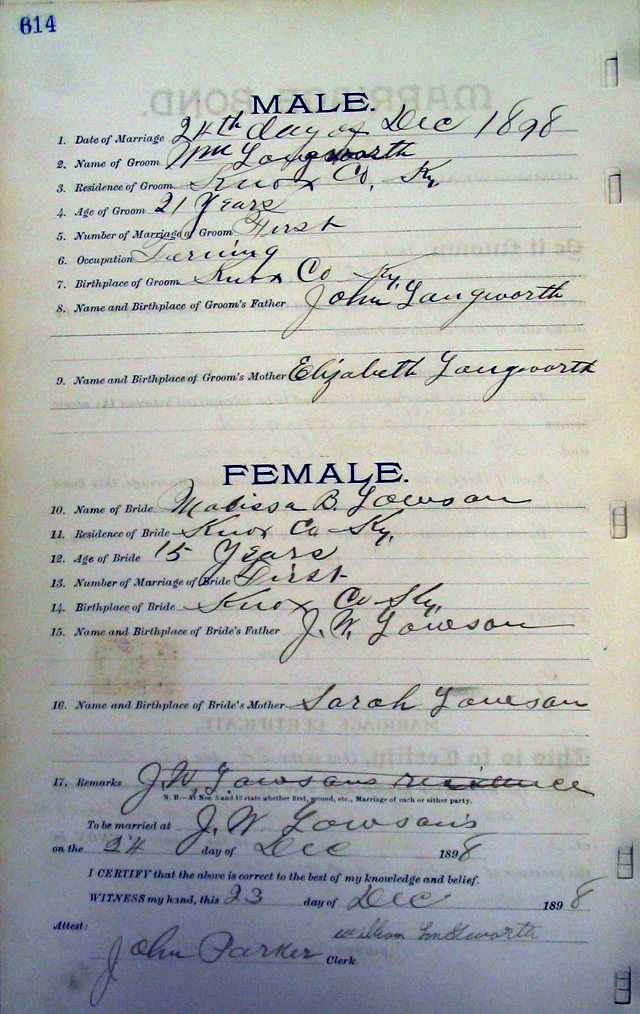 614
MALE.
1. Date of Marriage 24th day of Dec 1898
2. Name of Groom Wm Longworth
3. Residence of Groom Knox Co, Ky
4. Age of Groom 21 Years
5. Number of Marriage of Groom First
6. Occupation Farming
7. Birthplace of Groom Knox Co Ky,
8. Name and Birthplace of Groom's Father John Longworth
9. Name and Birthplace of Groom's Mother Elizabeth Longworth
FEMALE.
10. Name of Bride Malissa B. Lawson
11. Residence of Bride Knox Co Ky,
12. Age of Bride 15 Years
13. Number of Marriage of Bride First
14. Birthplace of Bride Knox Co Ky,
15. Name and Birthplace of Bride's Father J. W. Lawson
16. Name and Birthplace of Bride's Mother Sarah Lawson
17. Remarks J. W. Lawsons residence
N. B.—At Nos. 5 and 13 state whether first, second, etc., Marriage of each or either party.
To be married at J. W. Lawson's
on the 24 day of Dec 1898
I CERTIFY that the above is correct to the best of my knowledge and belief.
WITNESS my hand, this 23 day of Dec 1898
William
Attest:
John Parker Clerk